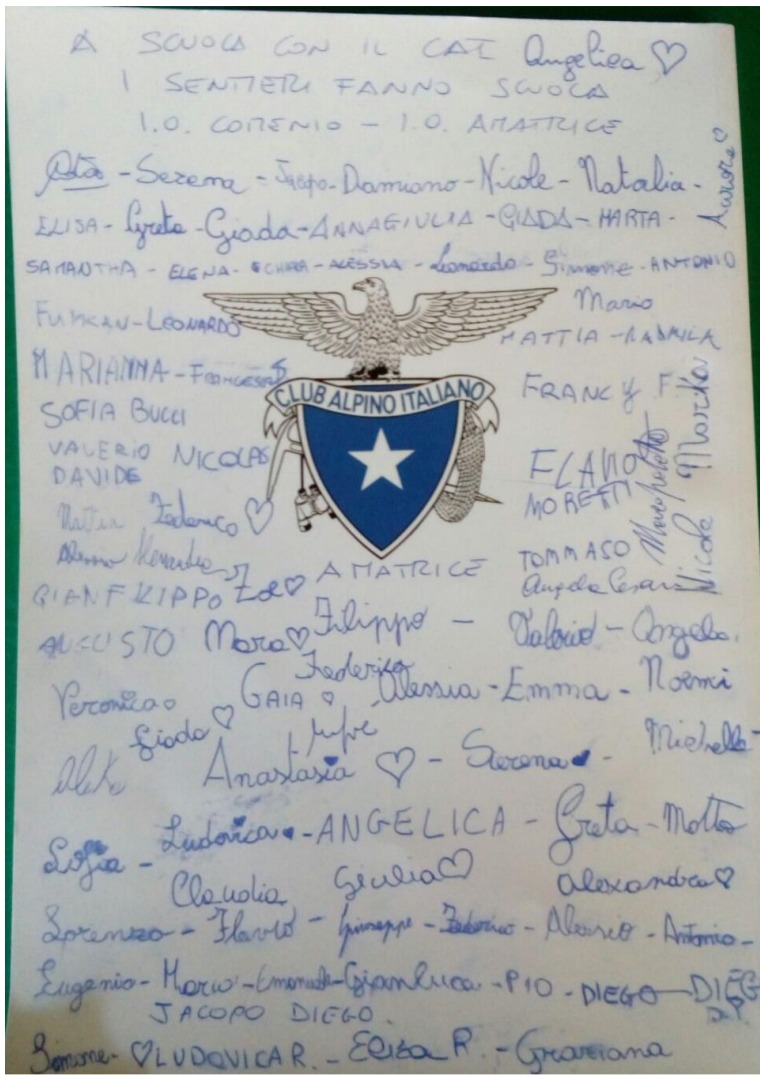 A SCUOLA CON IL CAI Angelica ♡
I SENTIERI FANNO SCUOLA
I.O. COMENIO - I.O. AMATRICE
Aurora ♡
- Serena - Damiano - Nicole - Natalia -
ELISA - Greta - Giada - ANNAGIULIA - GIADA - MARTA -
SAMANTHA - ELENA - CHIARA - ALESSIA - Leonardo - Simone - ANTONIO
Mario
FURKAN - LEONARDO
MATTIA - RADMILA
MARIANNA - FRANCESCO
CLUB ALPINO ITALIANO
FRANCY F
SOFIA BUCCI
Marika
VALERIO NICOLAS
DAVIDE
FLAVIO
MORETTI
Nicole
Mattia Federico ♡
TOMMASO
Alessio
AMATRICE
Angela Cesari
GIANFILIPPO Zoe ♡
AUGUSTO Mara ♡ Filippo - Valerio - Angelo.
Federica
Veronica GAIA Alessia - Emma - Noemi
Giada ♡
Michelle -
Anastasia ♡ - Serena -
Ludovica - ANGELICA - Greta - Matteo
Sofia -
Claudia Giulia ♡ Alexandra ♡
Lorenzo - Flavio - Giuseppe - Federico - Alessio - Antonio -
Eugenio - Mario - Emanuele - Gianluca - PIO - DIEGO - DIEG
JACOPO DIEGO.
Simone - ♡ LUDOVICA R. - Elisa R. - Graziana